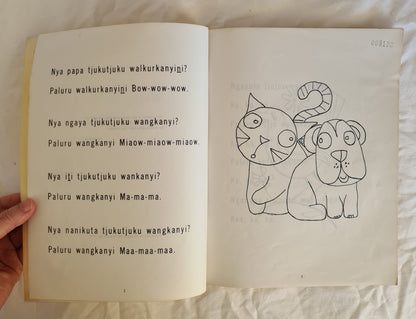 Nya papa tjukutjuku walkurkanyiṉi?
Paluru walkurkanyiṉi Bow-wow-wow.
Nya ngaya tjukutjuku wangkanyi?
Paluru wangkanyi Miaow-miaow-miaow.
Nya iṯi tjukutjuku wankanyi?
Paluru wangkanyi Ma-ma-ma.
Nya nanikuta tjukutjuku wangkanyi?
Paluru wangkanyi Maa-maa-maa.